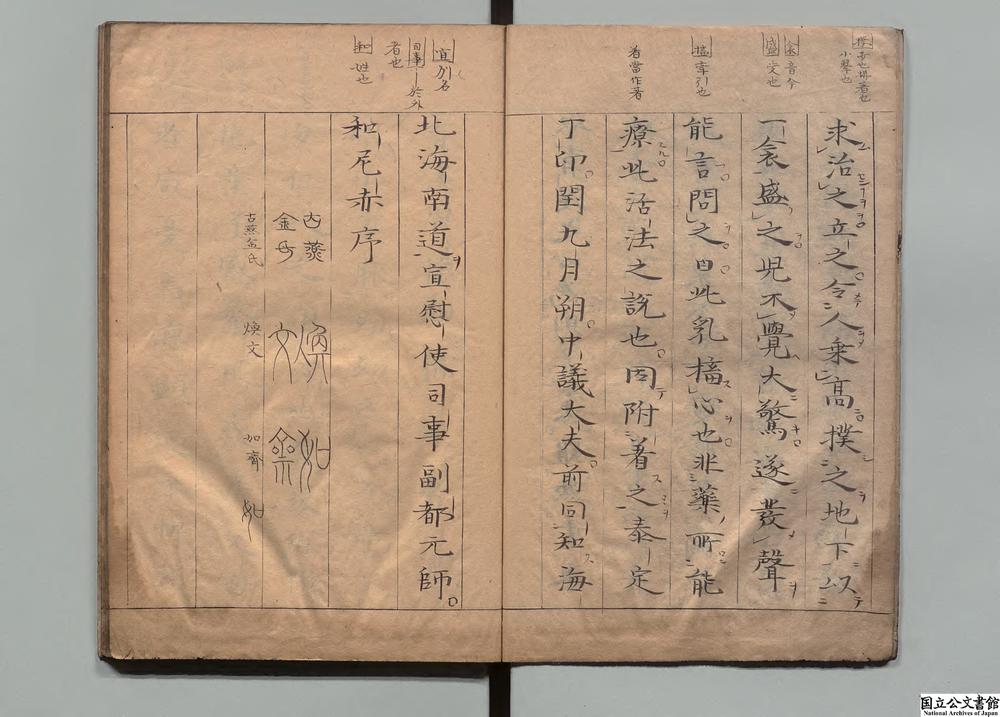 求治之立之令人乗高撲之地下以
一衾盛之児不覺大驚遂發聲
能言問之曰此乳搐心也非藥所能
療此活法之説也因附著之泰定
丁卯閏九月朔中議大夫前同知海
北海南道宣慰使司事副都元師
和尼赤序
衾 音今
盛 受也
搐 牽引也
着當作著
宣 別名
者也
和 姓也
古燕
金氏
煥
文
如
齋
古燕金氏
煥文
如齊
如
国立公文書館
National Archives of Japan